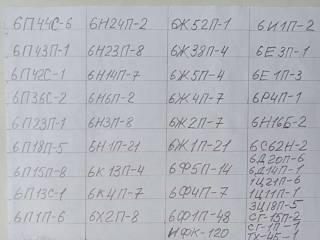 6П44С-6 6Н24П-2 6Ж52П-1 6И1П-2
6П43П-1 6Н23П-8 6Ж38П-4 6Е3П-1
6П42С-1 6Н14П-7 6Ж5П-4 6Е1П-3
6П36С-2 6Н6П-2 6Ж4П-7 6Р4П-1
6П23П-1 6Н3П-8 6Ж2П-7 6Н16Б-2
6П18П-5 6Н1П-21 6Ж1П-21 6С62Н-2
6Д20П-6
6П15П-8 6К13П-4 6Ф5П-14 6Д14П-1
1Ц21П-6
6П13С-1 6К4П-7 6Ф4П-7 1Ц11П-1
3Ц18П-5
6П1П-6 6Х2П-8 6Ф1П-48 СГ-15П-2
СГ-1П-1
ИФК-120 ТХ-4Б-1